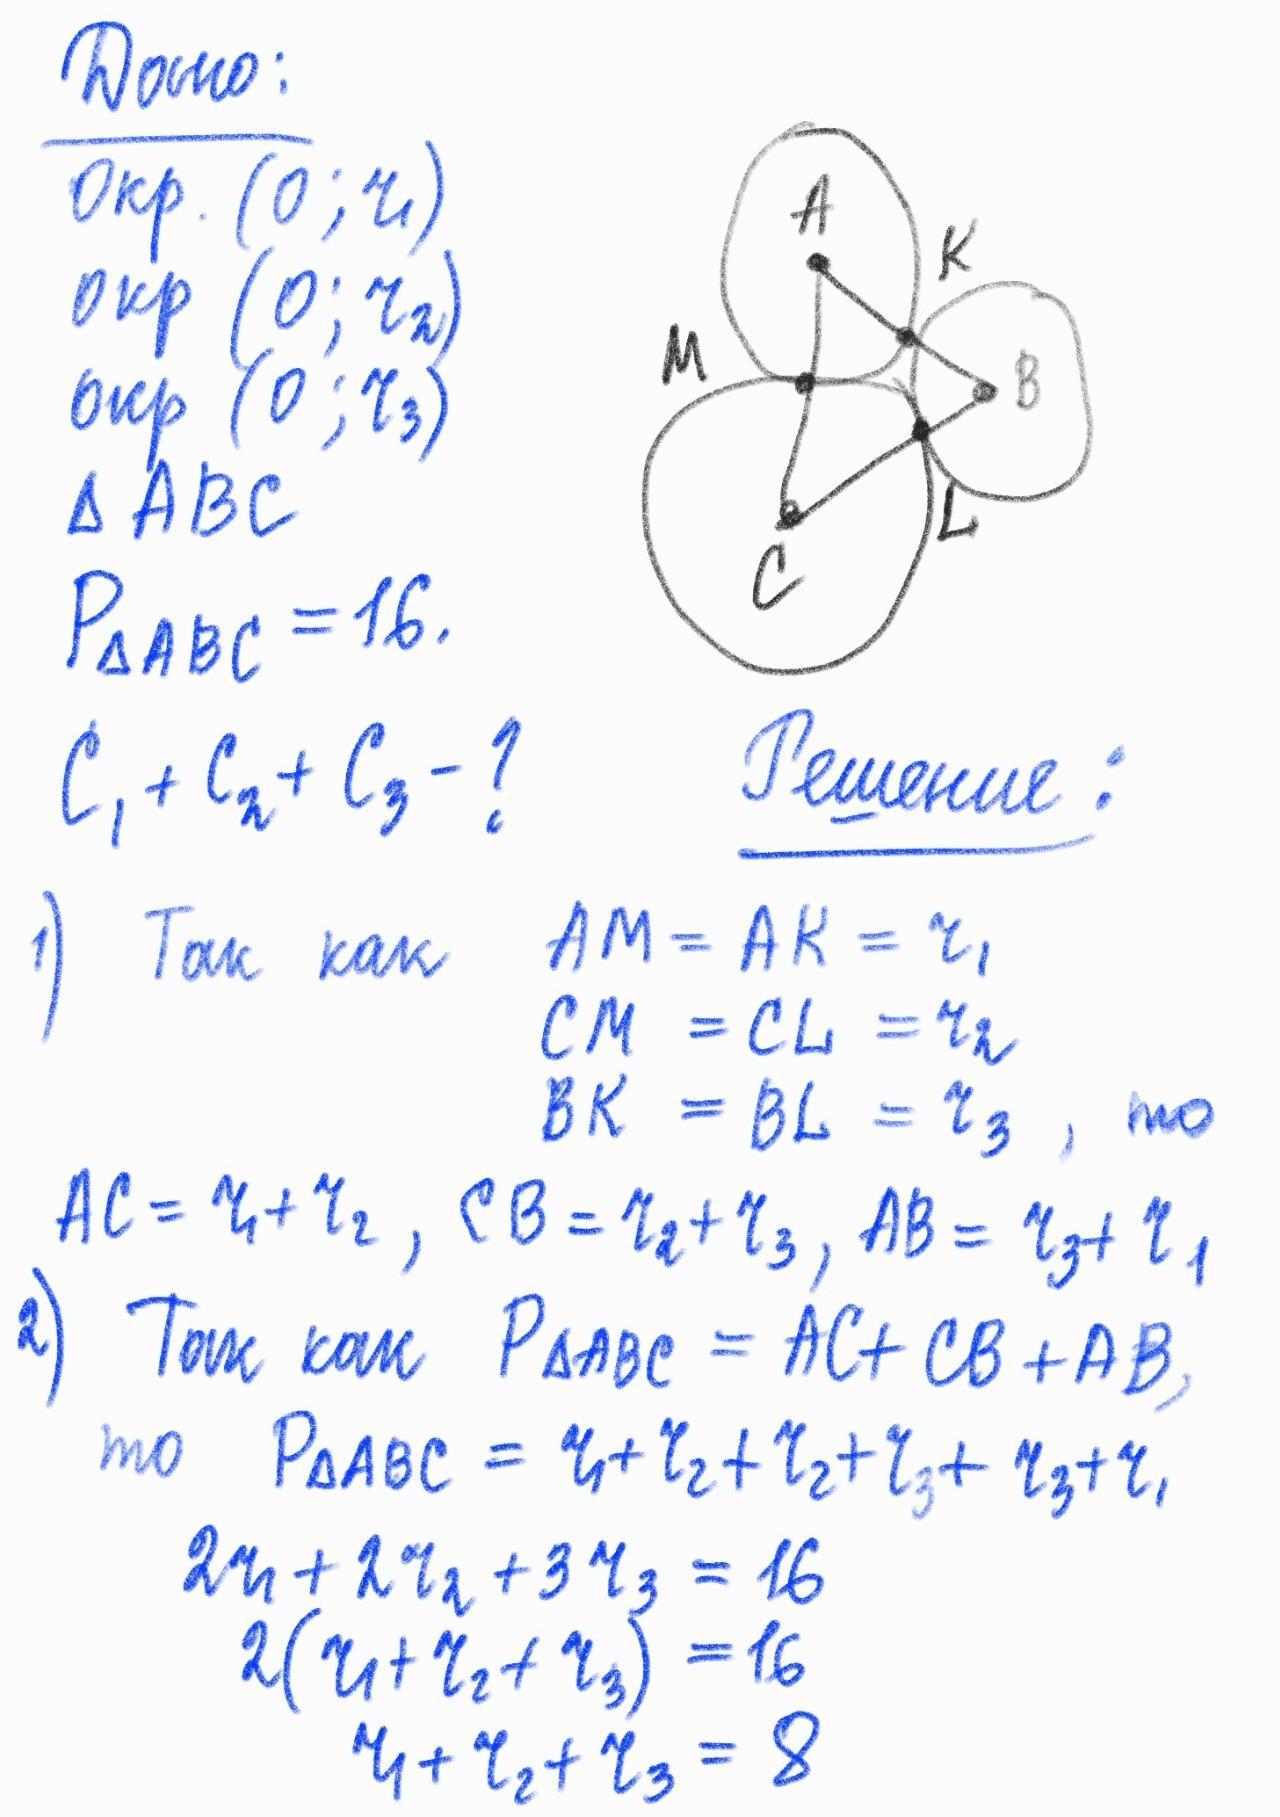 Дано:
Окр. (O; r₁)
окр (O; r₂)
окр (O; r₃)
Δ ABC
P_ΔABC = 16.
C₁ + C₂ + C₃ - ?
A
K
M
B
L
C
Решение:
1) Так как AM = AK = r₁
CM = CL = r₂
BK = BL = r₃, то
AC = r₁ + r₂, CB = r₂ + r₃, AB = r₃ + r₁
2) Так как P_ΔABC = AC + CB + AB,
то P_ΔABC = r₁ + r₂ + r₂ + r₃ + r₃ + r₁
2r₁ + 2r₂ + 3r₃ = 16
2(r₁ + r₂ + r₃) = 16
r₁ + r₂ + r₃ = 8